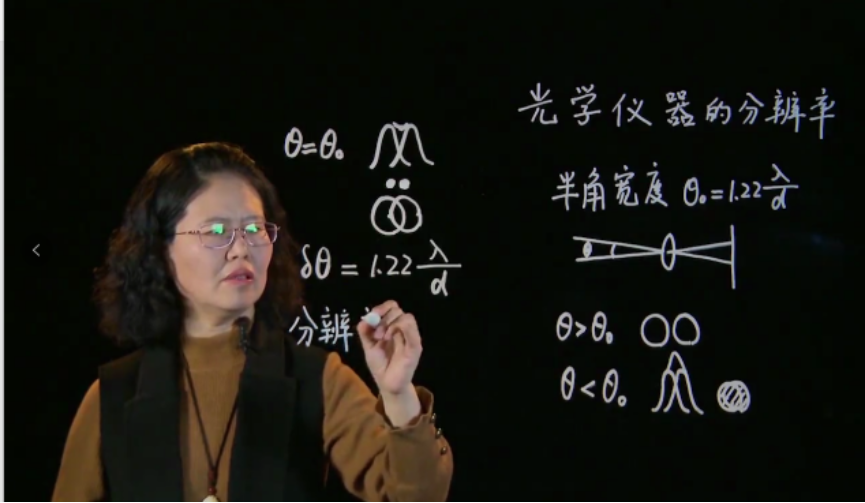 光学仪器的分辨率
半角宽度 θ₀=1.22 λ/d
θ>θ₀
θ<θ₀
θ=θ₀
δθ=1.22 λ/d
分辨